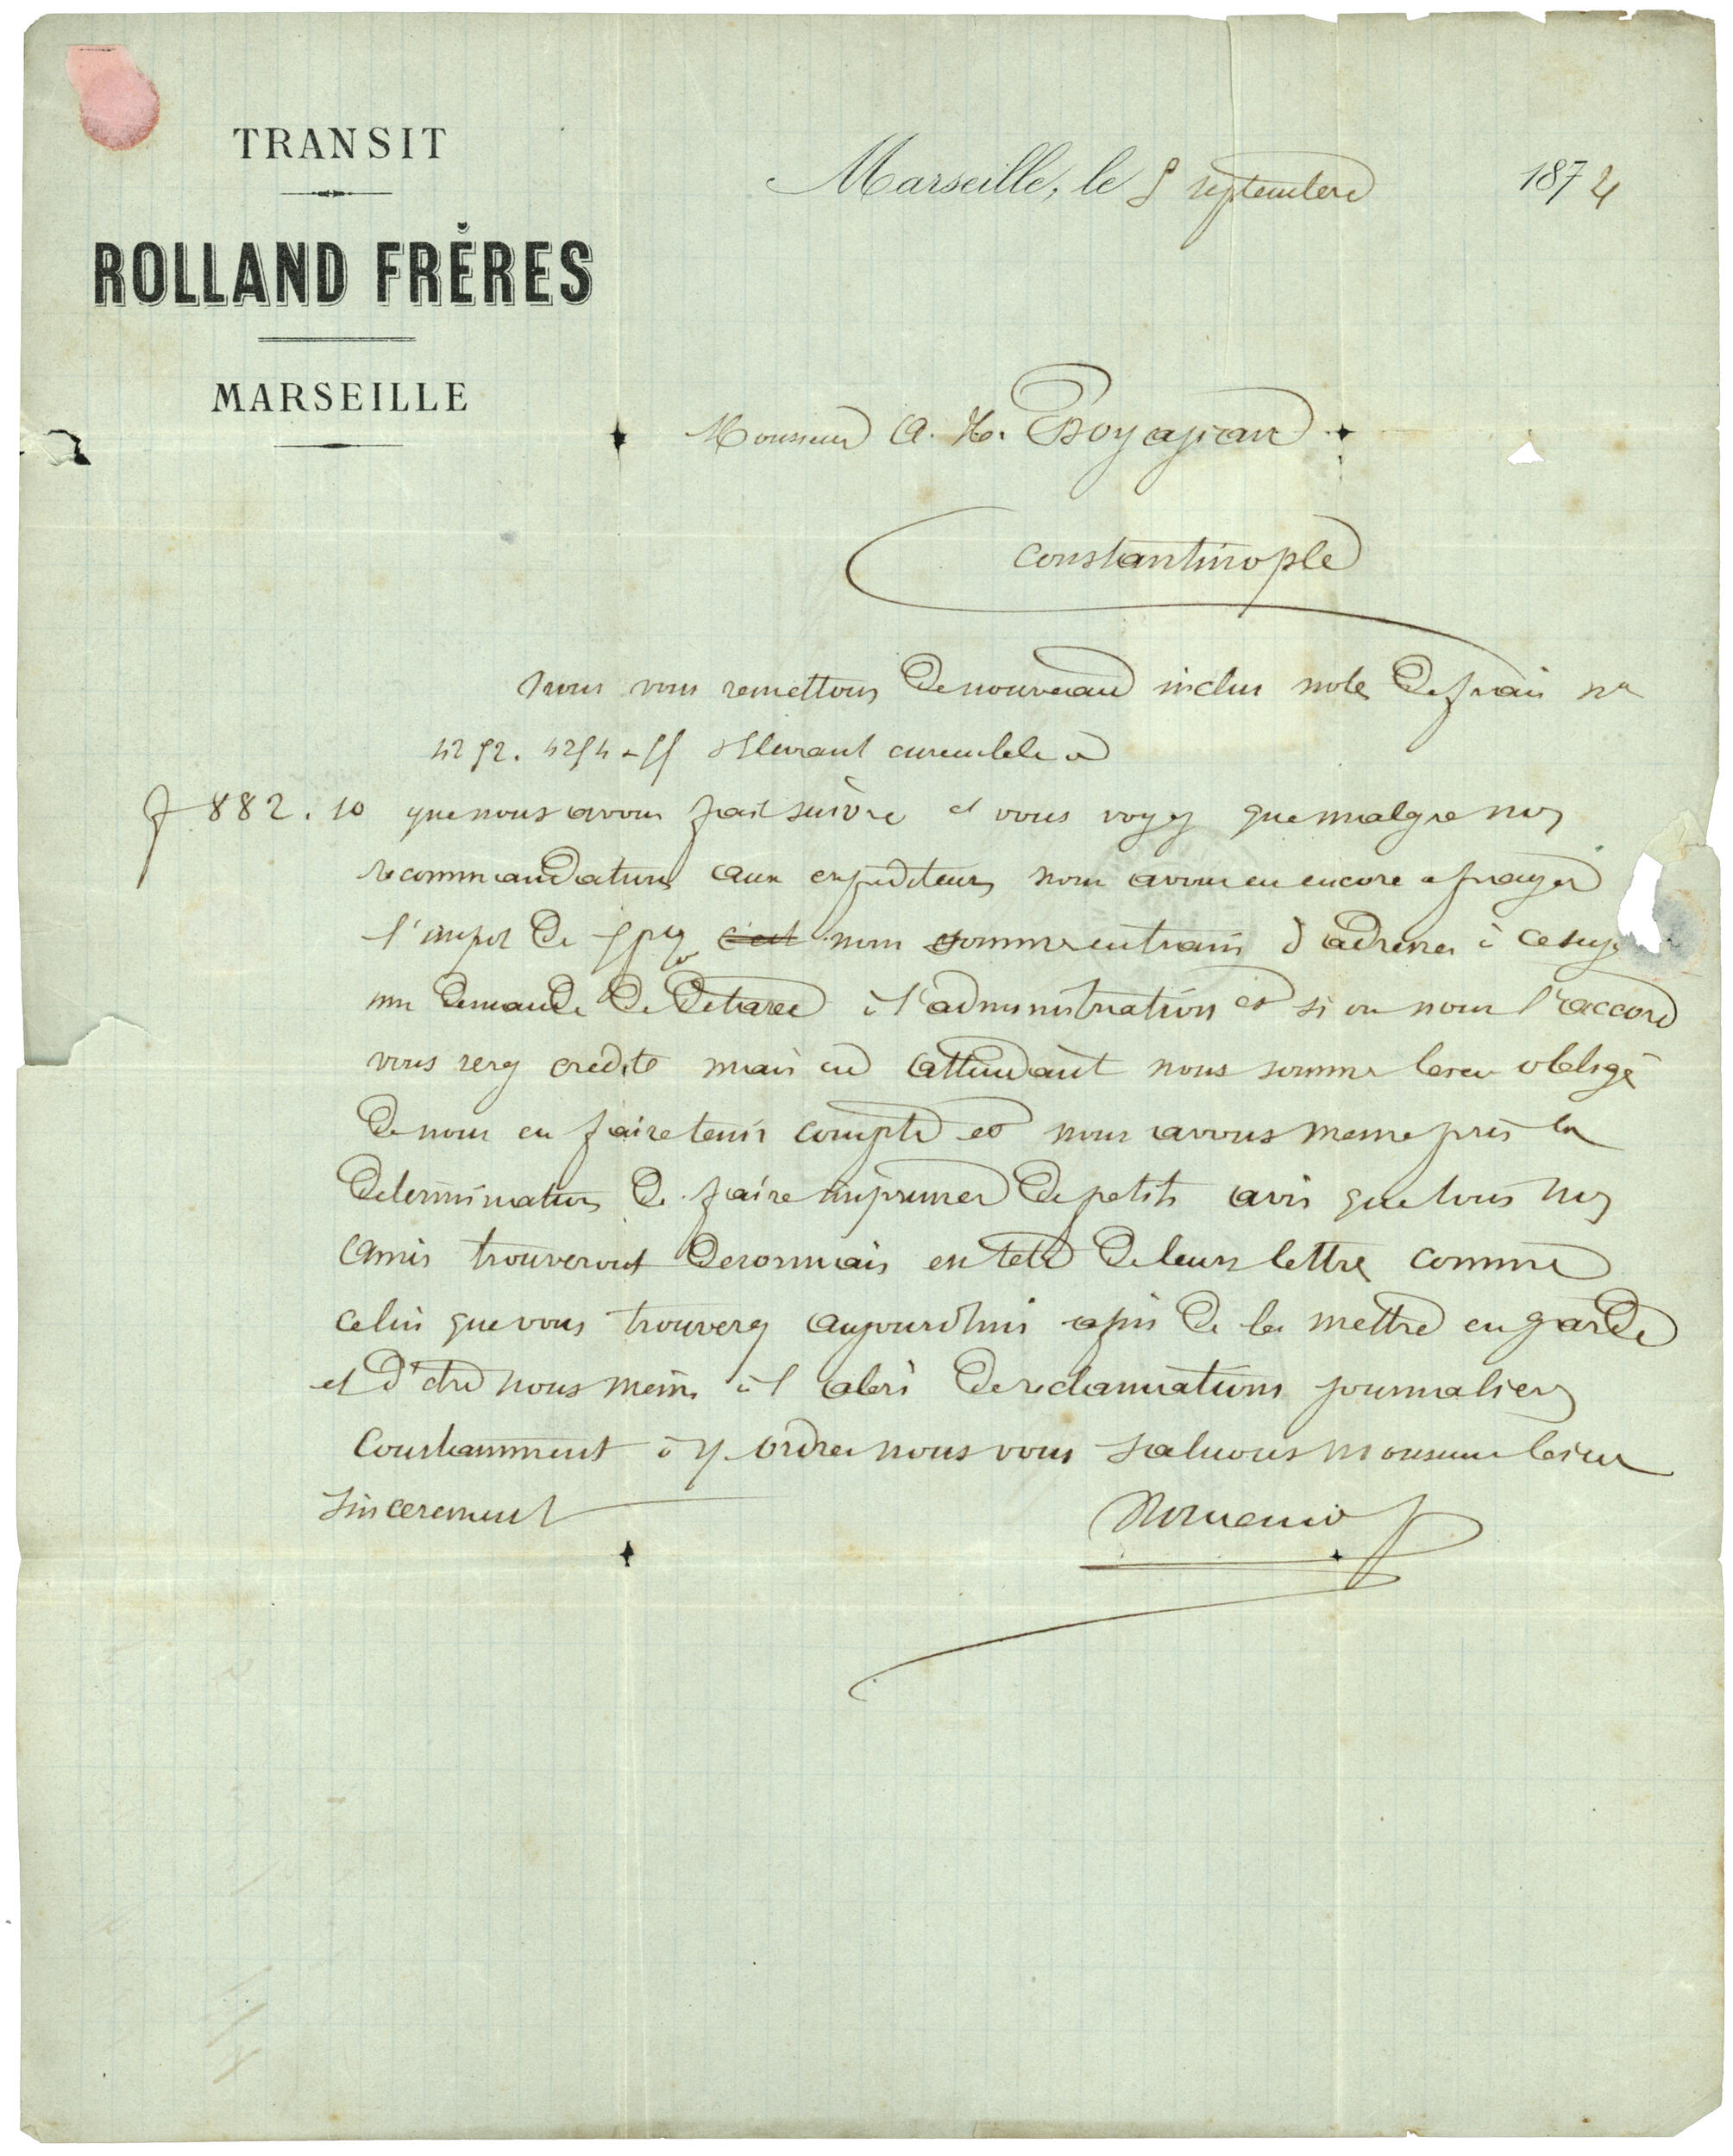 TRANSIT
ROLLAND FRÈRES
MARSEILLE
Marseille, le 5 septembre 1874
Monsieur A. H. Boyajian
Constantinople
Nous vous remettons de nouveau inclus note de frais no
4252. 4254 - 55 s'élevant ensemble a
f 882. 10 que nous avons fait suivre et vous voyez que malgre nos
recommandations aux expediteurs nous avons eu encore a payer
l'impot de 5 p% nous sommes en train d'adresser à ce suj
une demande de detaxe à l'administration et si on nous l'accord
vous serez crédité mais en attendant nous somme bien obligé
de nous en faire tenir compte et nous avons meme pris la
determination de faire imprimer de petits avis que tous nos
amis trouveront desormais en tete de leurs lettre comme
celui que vous trouverez aujourdhui afin de les mettre en garde
et d'etre nous meme à l abri de reclamations journaliers
Constamment à v ordres nous vous saluons monsieur bien
sincerement